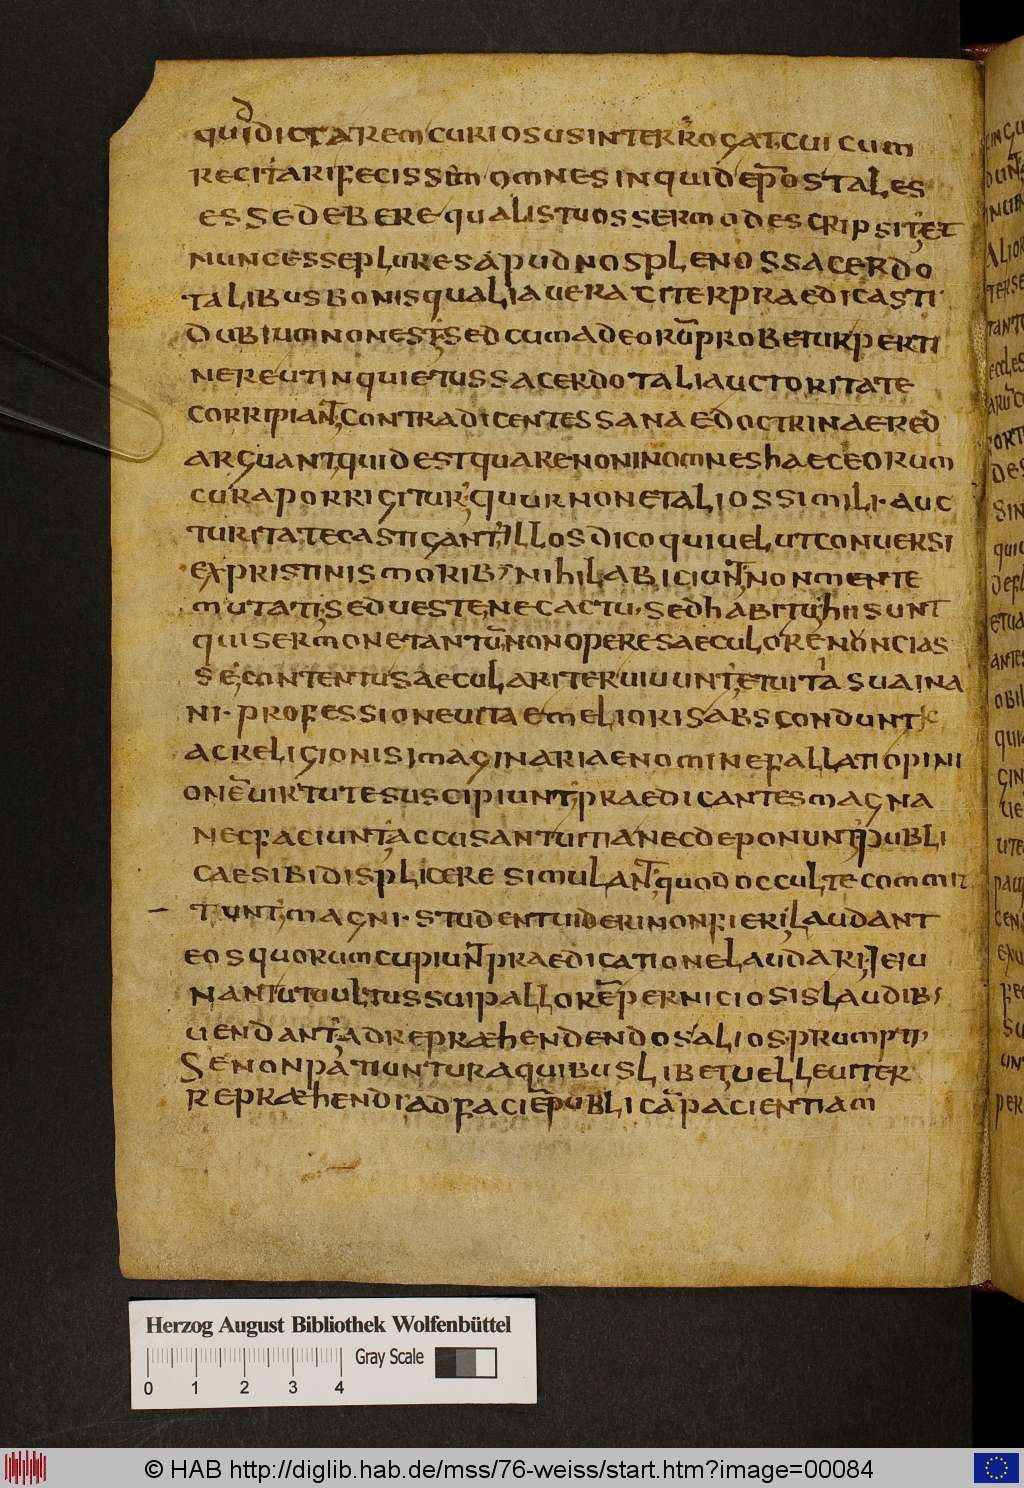 quiddictarem curiosus interrogat cui cum
recitari fecissem omnes inquid ep̄os tales
esse debere qualis tuos sermo descripsit et
nunc esse plures apud nos plenos sacerdo
talibus bonis qualia uera citer praedicasti
dubium non est sed cum ad eorū probetur perti
nere ut inquietus sacerdotali auctoritate
corripiant contradicentes sanae doctrinae red
arguant quid est quare non in omnes haec eorum
cura porrigitur quur non et alios simili auc
turitate castigant illos dico qui uelut conuersi
ex pristinis morib; nihil abiciunt non mente
mutati sed ueste nec actu sed habitu hii sunt
qui sermone tantū non opere saeculo renonncias
se contenti saeculariter uiuunt et uita sua ina
ni professione uitae melioris abscondunt
ac religionis imaginariae nomine fallati opini
onē uirtute suscipiunt praedicantes magna
nec faciunt accusant uitia nec deponunt publi
cae sibi displicere simulant quod occulte commit
tunt magni student uideri non fieri laudant
eos quorum cupiunt praedicatione laudari Ieiu
nantiū uultus sui pallorē perniciosis laudib;
uendant ad repræhendendos alios prumpti
se non patiuntur a quibuslibet uelleuiter
repræhendi ad faciē publicā pacientiam
Herzog August Bibliothek Wolfenbüttel
Gray Scale
0 1 2 3 4
© HAB http://diglib.hab.de/mss/76-weiss/start.htm?image=00084